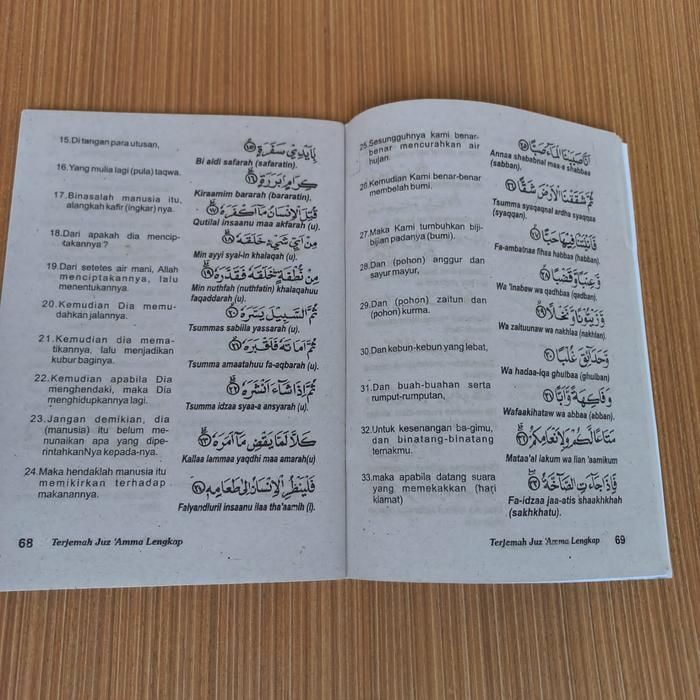 15.Di tangan para utusan,
بِاَيْدِيْ سَفَرَةٍ ۝١٥
Bi aidi safarah (safaratin).
16.Yang mulia lagi (pula) taqwa.
كِرَامٍ بَرَرَةٍ ۝١٦
Kiraamim bararah (bararatin).
17.Binasalah manusia itu,
alangkah kafir (ingkar) nya.
قُتِلَ الْاِنْسَانُ مَآ اَكْفَرَهُ ۝١٧
Qutilal insaanu maa akfarah (u).
18.Dari apakah dia mencip-
takannya ?
مِنْ اَيِّ شَيْءٍ خَلَقَهُ ۝١٨
Min ayyi syai-in khalaqah (u).
19.Dari setetes air mani, Allah
menciptakannya, lalu
menentukannya.
مِنْ نُّطْفَةٍ خَلَقَهُ فَقَدَّرَهُ ۝١٩
Min nuthfah (nuthfatin) khalaqahuu
faqaddarah (u).
20.Kemudian Dia memu-
dahkan jalannya.
ثُمَّ السَّبِيْلَ يَسَّرَهُ ۝٢٠
Tsummas sabiila yassarah (u).
21.Kemudian dia mema-
tikannya, lalu menjadikan
kubur baginya.
ثُمَّ اَمَاتَهُ فَاَقْبَرَهُ ۝٢١
Tsumma amaatahuu fa-aqbarah (u).
22.Kemudian apabila Dia
menghendaki, maka Dia
menghidupkannya lagi.
ثُمَّ اِذَا شَآءَ اَنْشَرَهُ ۝٢٢
Tsumma idzaa syaa-a ansyarah (u).
23.Jangan demikian, dia
(manusia) itu belum me-
nunaikan apa yang dipe-
rintahkanNya kepada-nya.
كَلَّا لَمَّا يَقْضِ مَآ اَمَرَهُ ۝٢٣
Kallaa lammaa yaqdhi maa amarah(u)
24.Maka hendaklah manusia itu
memikirkan terhadap
makanannya.
فَلْيَنْظُرِ الْاِنْسَانُ اِلٰى طَعَامِهٖ ۝٢٤
Falyandluril insaanu ilaa tha'aamih (i).
68 Terjemah Juz 'Amma Lengkap
25.Sesungguhnya kami benar-
benar mencurahkan air
hujan.
اَنَّا صَبَبْنَا الْمَآءَ صَبًّا ۝٢٥
Annaa shababnal maa-a shabbaa
(sabban).
26.Kemudian Kami benar-benar
membelah bumi.
ثُمَّ شَقَقْنَا الْاَرْضَ شَقًّا ۝٢٦
Tsumma syaqaqnal ardha syaqqaa
(syaqqan).
27.Maka Kami tumbuhkan biji-
bijian padanya (bumi).
فَاَنْبَتْنَا فِيْهَا حَبًّا ۝٢٧
Fa-ambatnaa fihaa habbaa (habban).
28.Dan (pohon) anggur dan
sayur mayur,
وَّعِنَبًا وَّقَضْبًا ۝٢٨
Wa 'inabaw wa qadhbaa (qadban).
29.Dan (pohon) zaitun dan
(pohon) kurma.
وَّزَيْتُوْنًا وَّنَخْلًا ۝٢٩
Wa zaituunaw wa nakhlaa (nakhlan)
30.Dan kebun-kebun yang lebat,
وَّحَدَآئِقَ غُلْبًا ۝٣٠
Wa hadaa-iqa ghulbaa (ghulban)
31.Dan buah-buahan serta
rumput-rumputan,
وَّفَاكِهَةً وَّاَبًّا ۝٣١
Wafaakihataw wa abbaa (abban).
32.Untuk kesenangan ba-gimu,
dan binatang-binatang
ternakmu.
مَتَاعًا لَّكُمْ وَلِاَنْعَامِكُمْ ۝٣٢
Mataa'al lakum wa lian 'aamikum
33.maka apabila datang suara
yang memekakkan (hari
kiamat)
فَاِذَا جَآءَتِ الصَّآخَّةُ ۝٣٣
Fa-idzaa jaa-atis shaakhkhah
(sakhkhatu).
Terjemah Juz 'Amma Lengkap 69